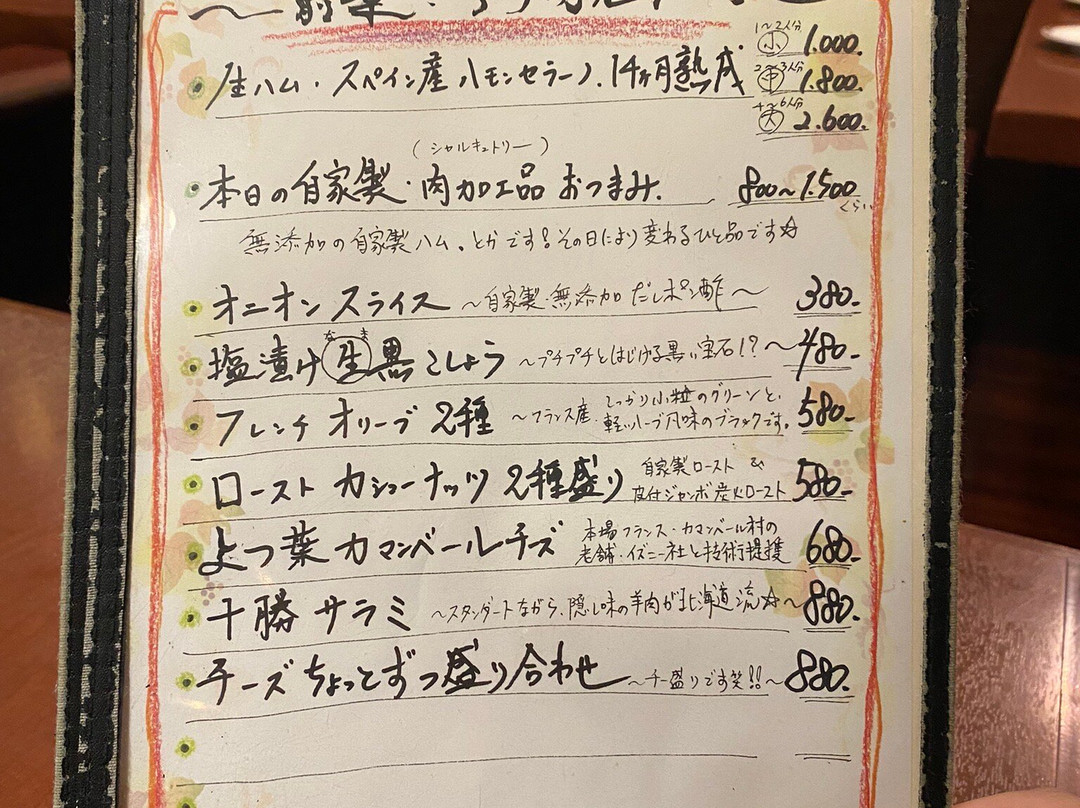 1〜2人分 ㊛ 1.000.
生ハム・スペイン産ハモンセラーノ.14ヵ月熟成 2〜3人分 ㊥ 1.800.
4〜6人分 ㊅ 2.600.
(シャルキュトリー)
本日の自家製・肉加工品 おつまみ. 800〜1.500 くらい
無添加の自家製ハム。とかです!その日により変わるひと品です☆
オニオンスライス 〜自家製・無添加 だしポン酢〜 380-
塩漬け生黒こしょう 〜プチプチとはじける黒い宝石!?〜 480-
なま
フレンチ オリーブ 2種 〜フランス産. しっかり小粒のグリーンと、
軽いハーブ風味のブラックです。 580-
ロースト カシューナッツ 2種盛り 自家製ロースト &
皮付ジャンボ炭火ロースト 580-
よつ葉 カマンベールチーズ 本場フランス・カマンベール村の
老舗・イズニー社と技術提援 680-
十勝 サラミ 〜スタンダートながら、隠し味の羊肉が北海道流☆〜 880.
チーズ ちょっとずつ盛り合わせ 〜チー盛りです笑!!〜 880.